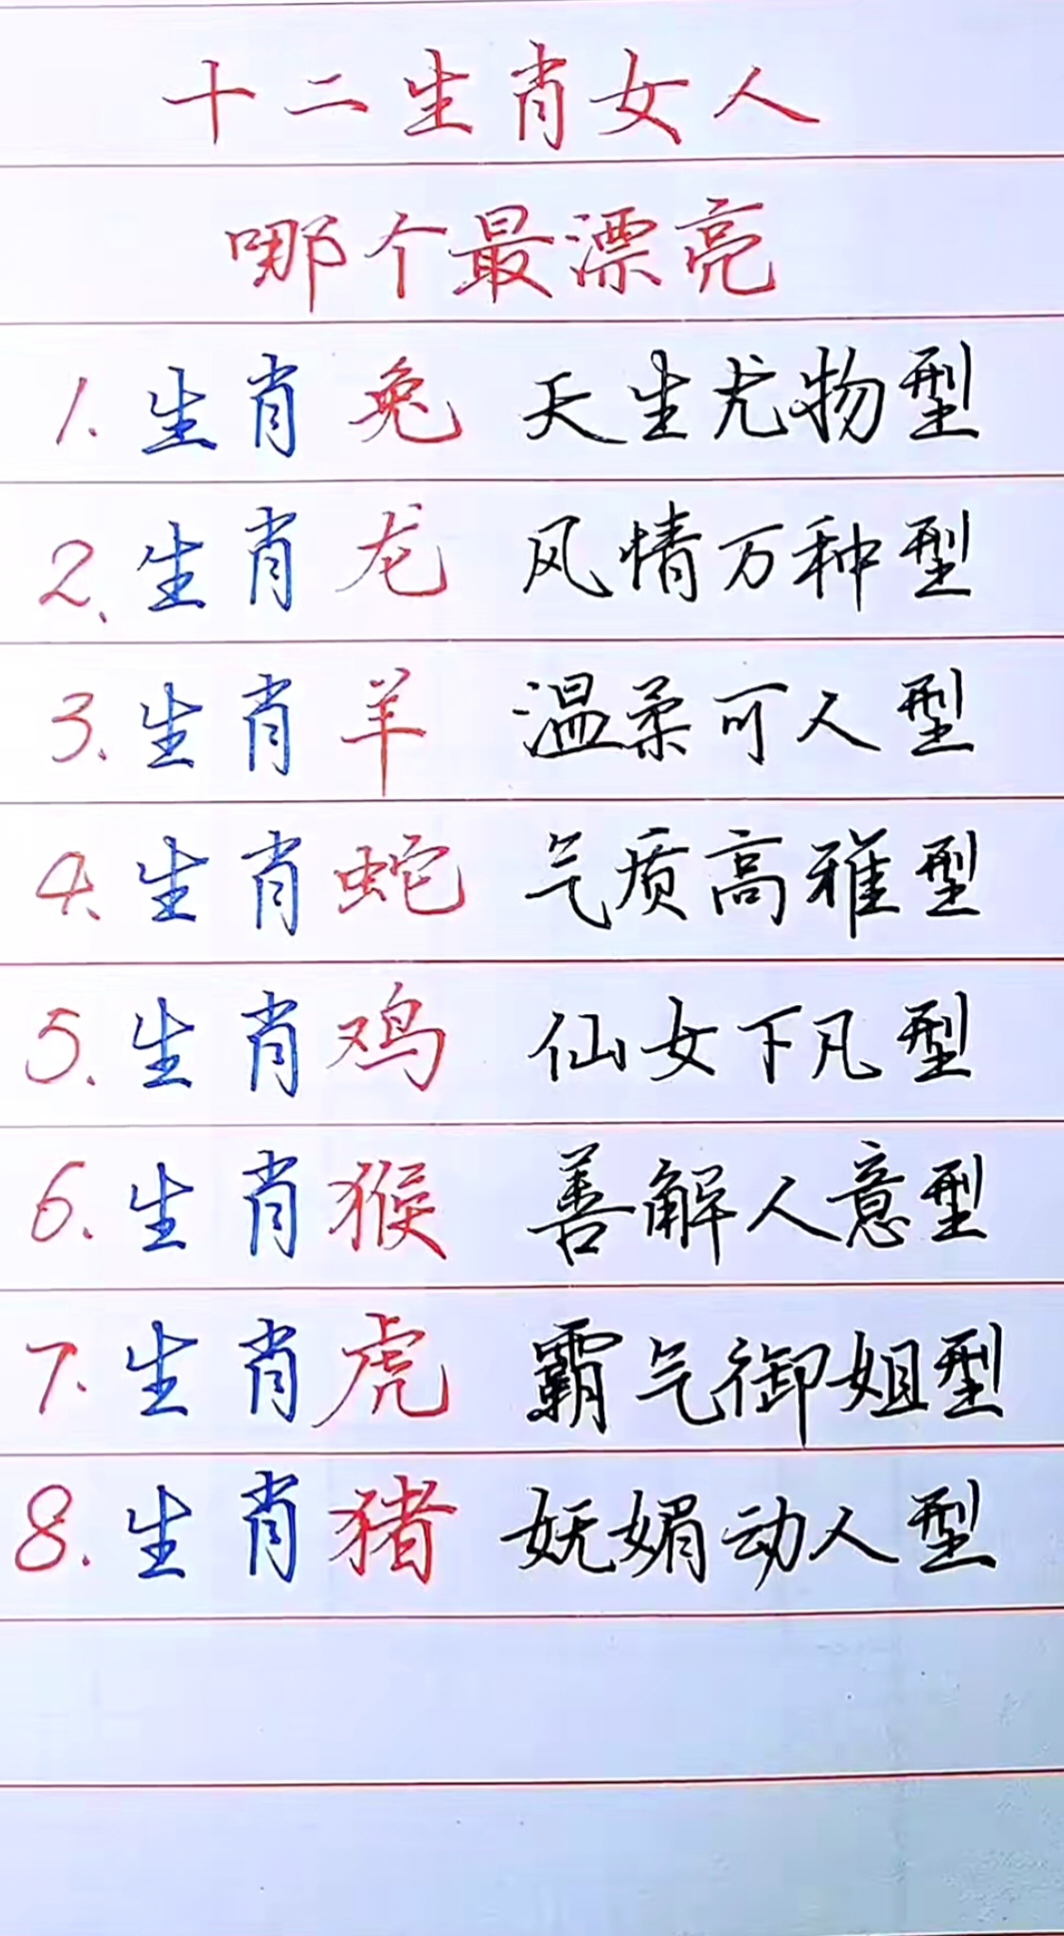 十二生肖女人
哪个最漂亮
1. 生肖兔 天生尤物型
2. 生肖龙 风情万种型
3. 生肖羊 温柔可人型
4. 生肖蛇 气质高雅型
5. 生肖鸡 仙女下凡型
6. 生肖猴 善解人意型
7. 生肖虎 霸气御姐型
8. 生肖猪 妩媚动人型